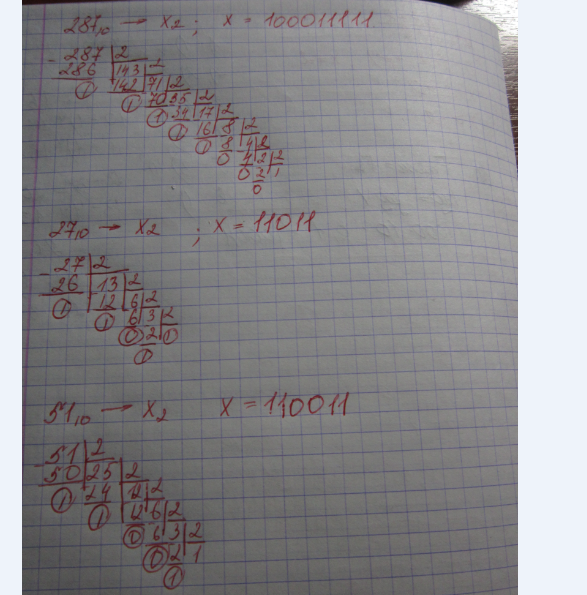 287₁₀ → X₂ ; X = 100011111
- 287 | 2
286 | 143 | 2
1 | 142 | 71 | 2
1 | 70 | 35 | 2
1 | 34 | 17 | 2
1 | 16 | 8 | 2
1 | 8 | 4 | 2
0 | 4 | 2 | 2
0 | 2 | 1
0
27₁₀ → X₂ ; X = 11011
- 27 | 2
26 | 13 | 2
1 | 12 | 6 | 2
1 | 6 | 3 | 2
0 | 2 | 1
1
51₁₀ → X₂ X = 110011
- 51 | 2
50 | 25 | 2
1 | 24 | 12 | 2
1 | 12 | 6 | 2
0 | 6 | 3 | 2
0 | 2 | 1
1